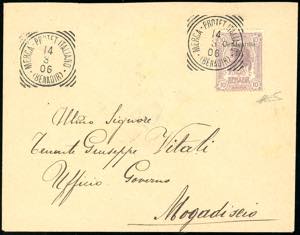 MERCA - PROTET. ITALIANO
14
06
(BENADIR)
MERCA - PROTET. ITALIANO
14
06
(BENADIR)
10 10
Illmo Signore
Tenente Giuseppe Vitali
Ufficio Governo
Mogadiscio